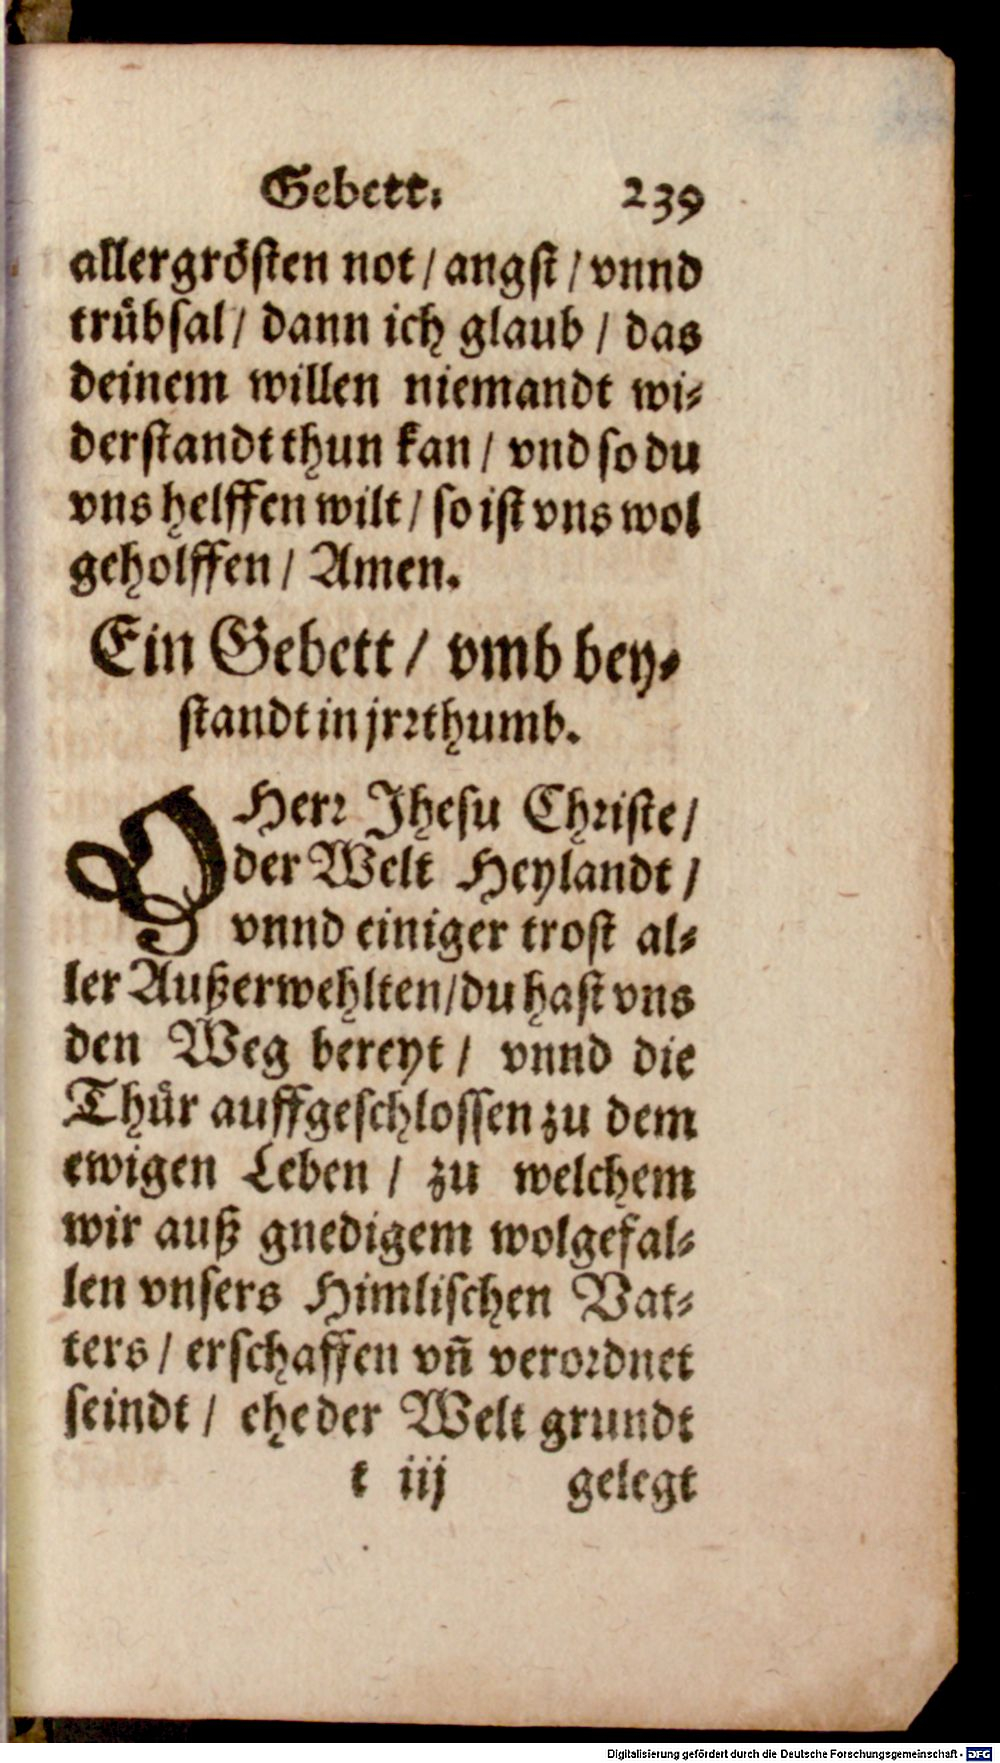 Gebett. 239
allergrösten not / angst / vnnd
trübsal / dann ich glaub / das
deinem willen niemandt wi⸗
derstandt thun kan / vnd so du
vns helffen wilt / so ist vns wol
geholffen / Amen.
Ein Gebett / vmb bey⸗
standt in jrrthumb.
O Herr Jhesu Christe /
der Welt Heylandt /
vnnd einiger trost al⸗
ler Außerwehlten / du hast vns
den Weg bereyt / vnnd die
Thür auffgeschlossen zu dem
ewigen Leben / zu welchem
wir auß gnedigem wolgefal⸗
len vnsers Himlischen Vat⸗
ters / erschaffen vñ verordnet
seindt / ehe der Welt grundt
t iij gelegt
Digitalisierung gefördert durch die Deutsche Forschungsgemeinschaft - DFG